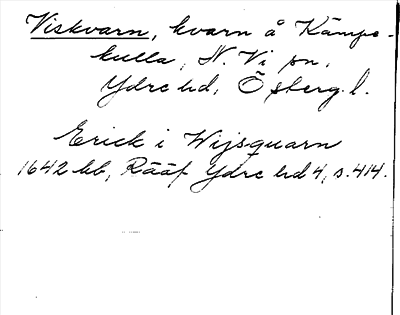 Viskvarn, kvarn å Kämpe-
kulla, N. Vi sn,
Ydre hd, Östergl.
Erick i Wijsquarn
1642 hb, Rääf Ydre hd 4, s. 414.